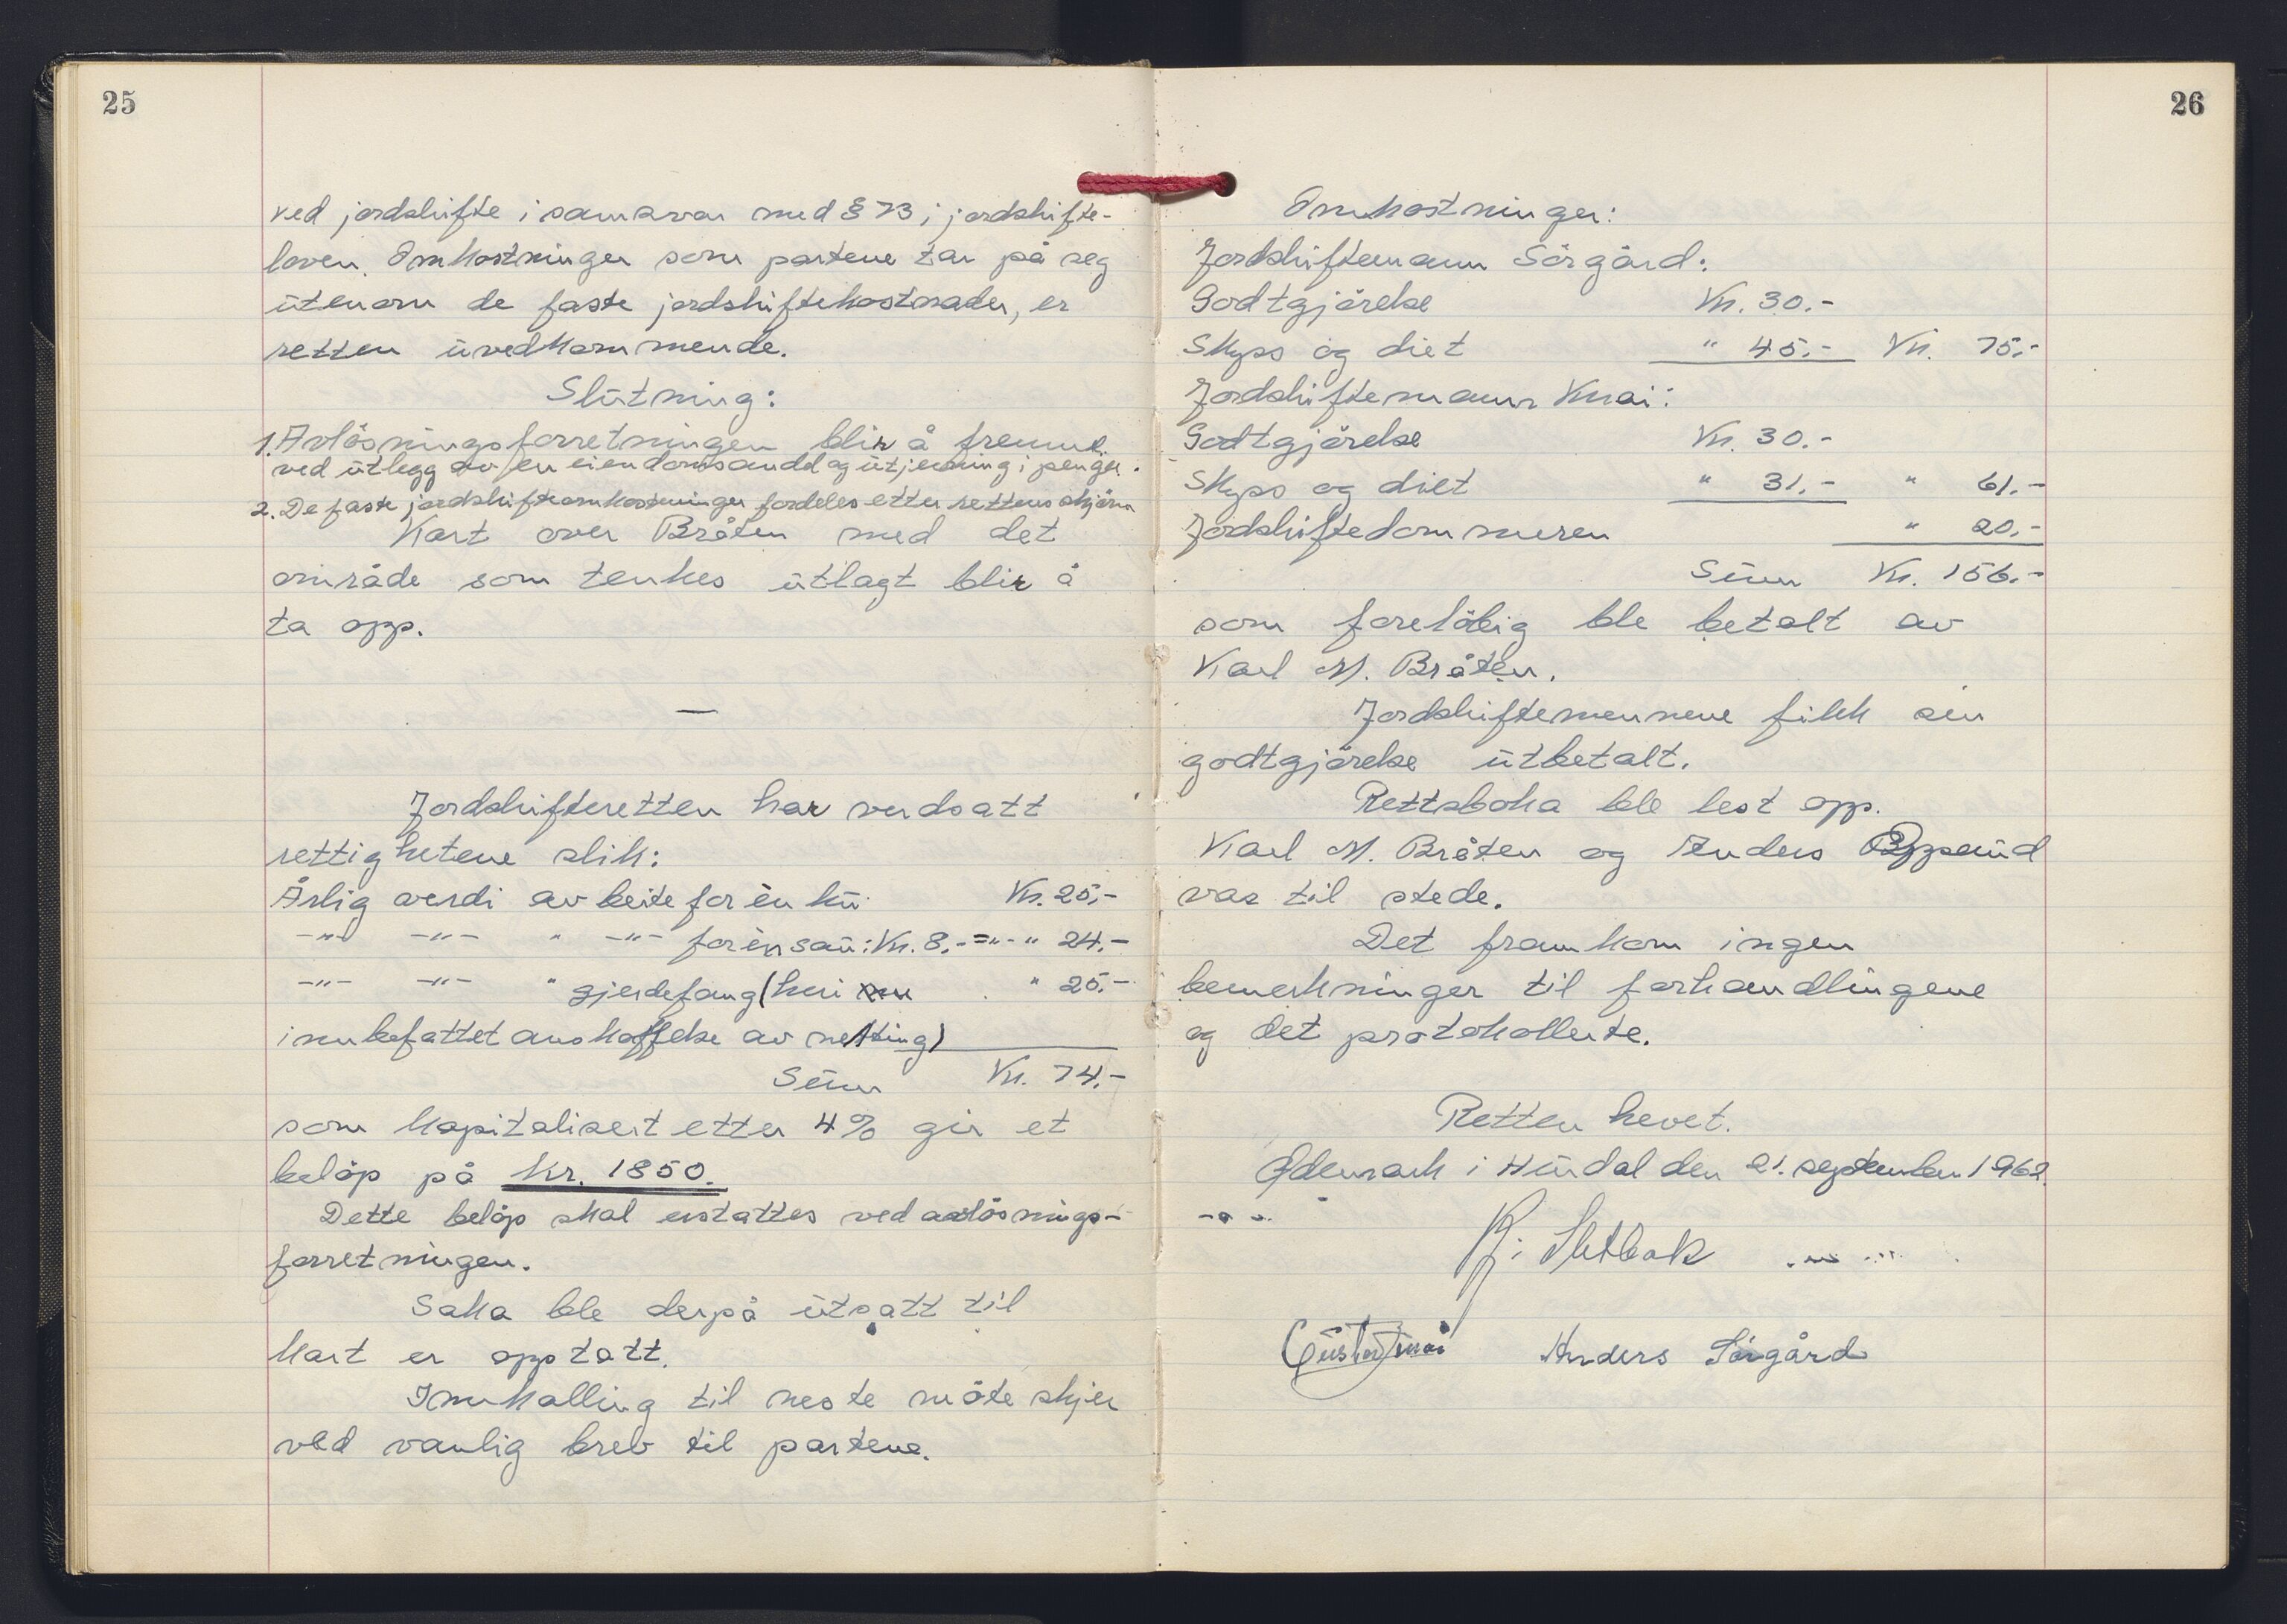 25
ved jordskifte i samsvar med § 73 i jordskifte-
loven. Omkostninger som partene tar på seg
utenom de faste jordskiftekostnader, er
retten uvedkommende.
Slutning:
1. Avløsningsforretningen blir å fremme
ved utlegg av en eiendomsandel og utjevning i penger.
2. De faste jordskifteomkostninger fordeles etter rettens skjønn
Kart over Bråten med det
område som tenkes utlagt blir å
ta opp.
—
Jordskifteretten har verdsatt
rettighetene slik:
Årlig verdi av beite for èn ku Kr. 25,-
-"- -"- " -"- for èn sau: Kr. 8.- = "-" 24.-
-"- -"- " gjerdefang (heri " 25.-
innbefattet anskaffelse av netting)
Sum Kr. 74.-
som kapitalisert etter 4% gir et
beløp på Kr. 1850.
Dette beløp skal erstattes ved avløsnings-
forretningen.
Saka ble derpå utsatt til
kart er opptatt.
Innkalling til neste møte skjer
ved vanlig brev til partene.
26
Omkostninger:
Jordskiftemann Sörgård:
Godtgjörelse Kr. 30.-
Skyss og diet " 45.- Kr. 75.-
Jordskiftemann Knai:
Godtgjörelse Kr. 30.-
Skyss og diet " 31.- " 61.-
Jordskiftedommeren " 20.-
Sum Kr. 156.-
som foreløbig ble betalt av
Karl M. Bråten.
Jordskiftemennene fikk sin
godtgjörelse utbetalt.
Rettsboka ble lest opp.
Karl M. Bråten og Anders Oppsund
var til stede.
Det framkom ingen
bemerkninger til forhandlingene
og det protokollerte.
Retten hevet.
Ødemark i Hurdal den 21. september 1962.
Anders Sörgård